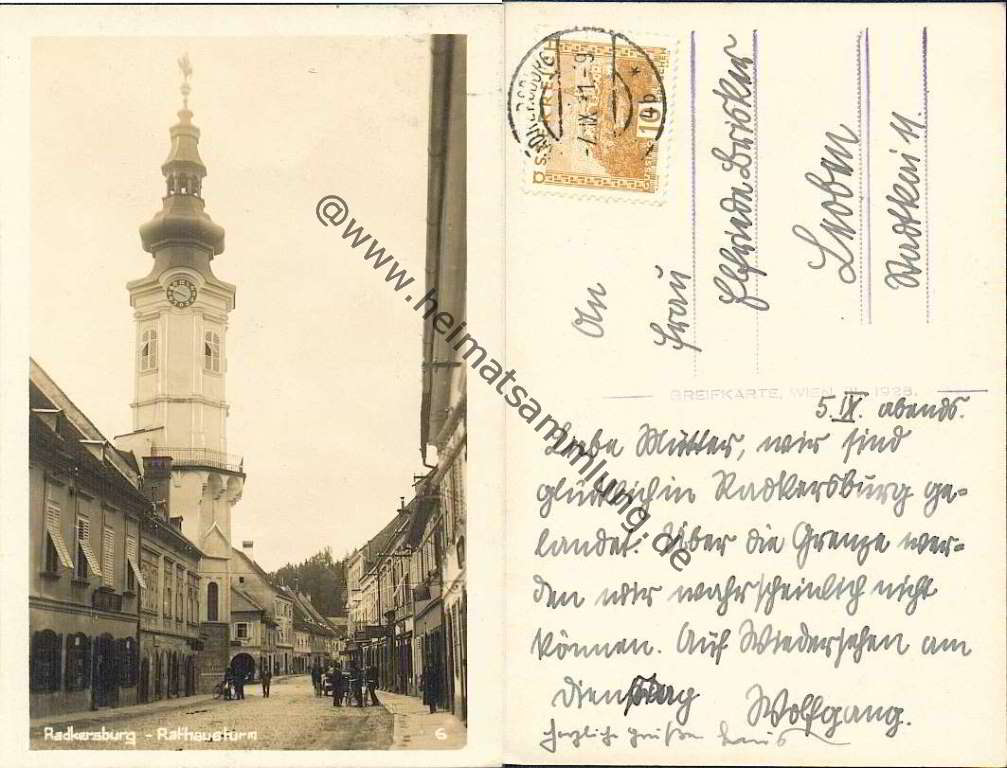 Radkersburg - Rathausturm 6
@www.heimatsammlung.de
10
An
Frau
Elfriede
Leoben
BREIFKARTE, WIEN III. 1928.
5. IX. abends.
Liebe Mutter, wir sind
glücklich in Radkersburg ge-
landet. Über die Grenze wer-
den wir wahrscheinlich nicht
können. Auf Wiedersehen am
Dienstag Wolfgang.
herzliche Grüße